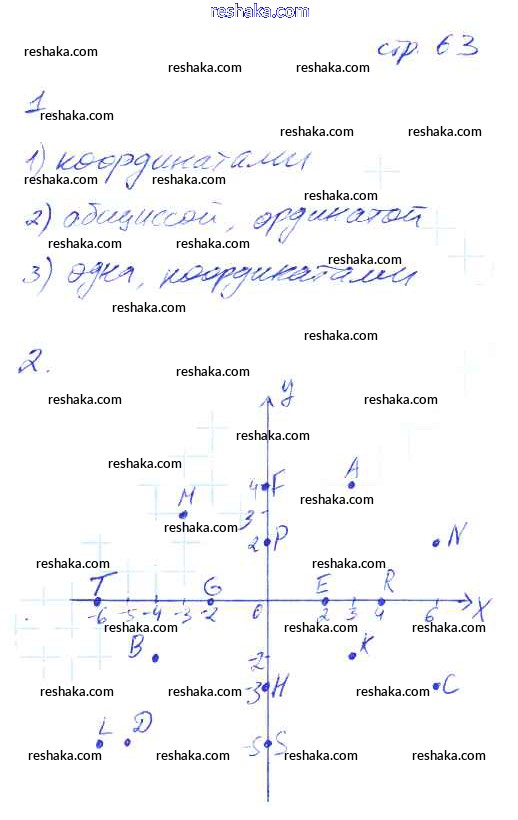 reshaka.com
стр. 63
reshaka.com
reshaka.com reshaka.com
1
reshaka.com
reshaka.com reshaka.com
1) координатами
reshaka.com reshaka.com
reshaka.com
2) абициссой, ординатой
reshaka.com reshaka.com
reshaka.com
3) одна, координатами
reshaka.com
reshaka.com
2.
reshaka.com
y
reshaka.com reshaka.com
reshaka.com
reshaka.com A
4 F
M reshaka.com
3
reshaka.com
2 P N
reshaka.com reshaka.com
T G E R
-6 -5 -4 -3 -2 0 2 3 4 6 X
reshaka.com reshaka.com reshaka.com
B -2 K
reshaka.com -3 H reshaka.com C
L D -5 S
reshaka.com reshaka.com reshaka.com reshaka.com